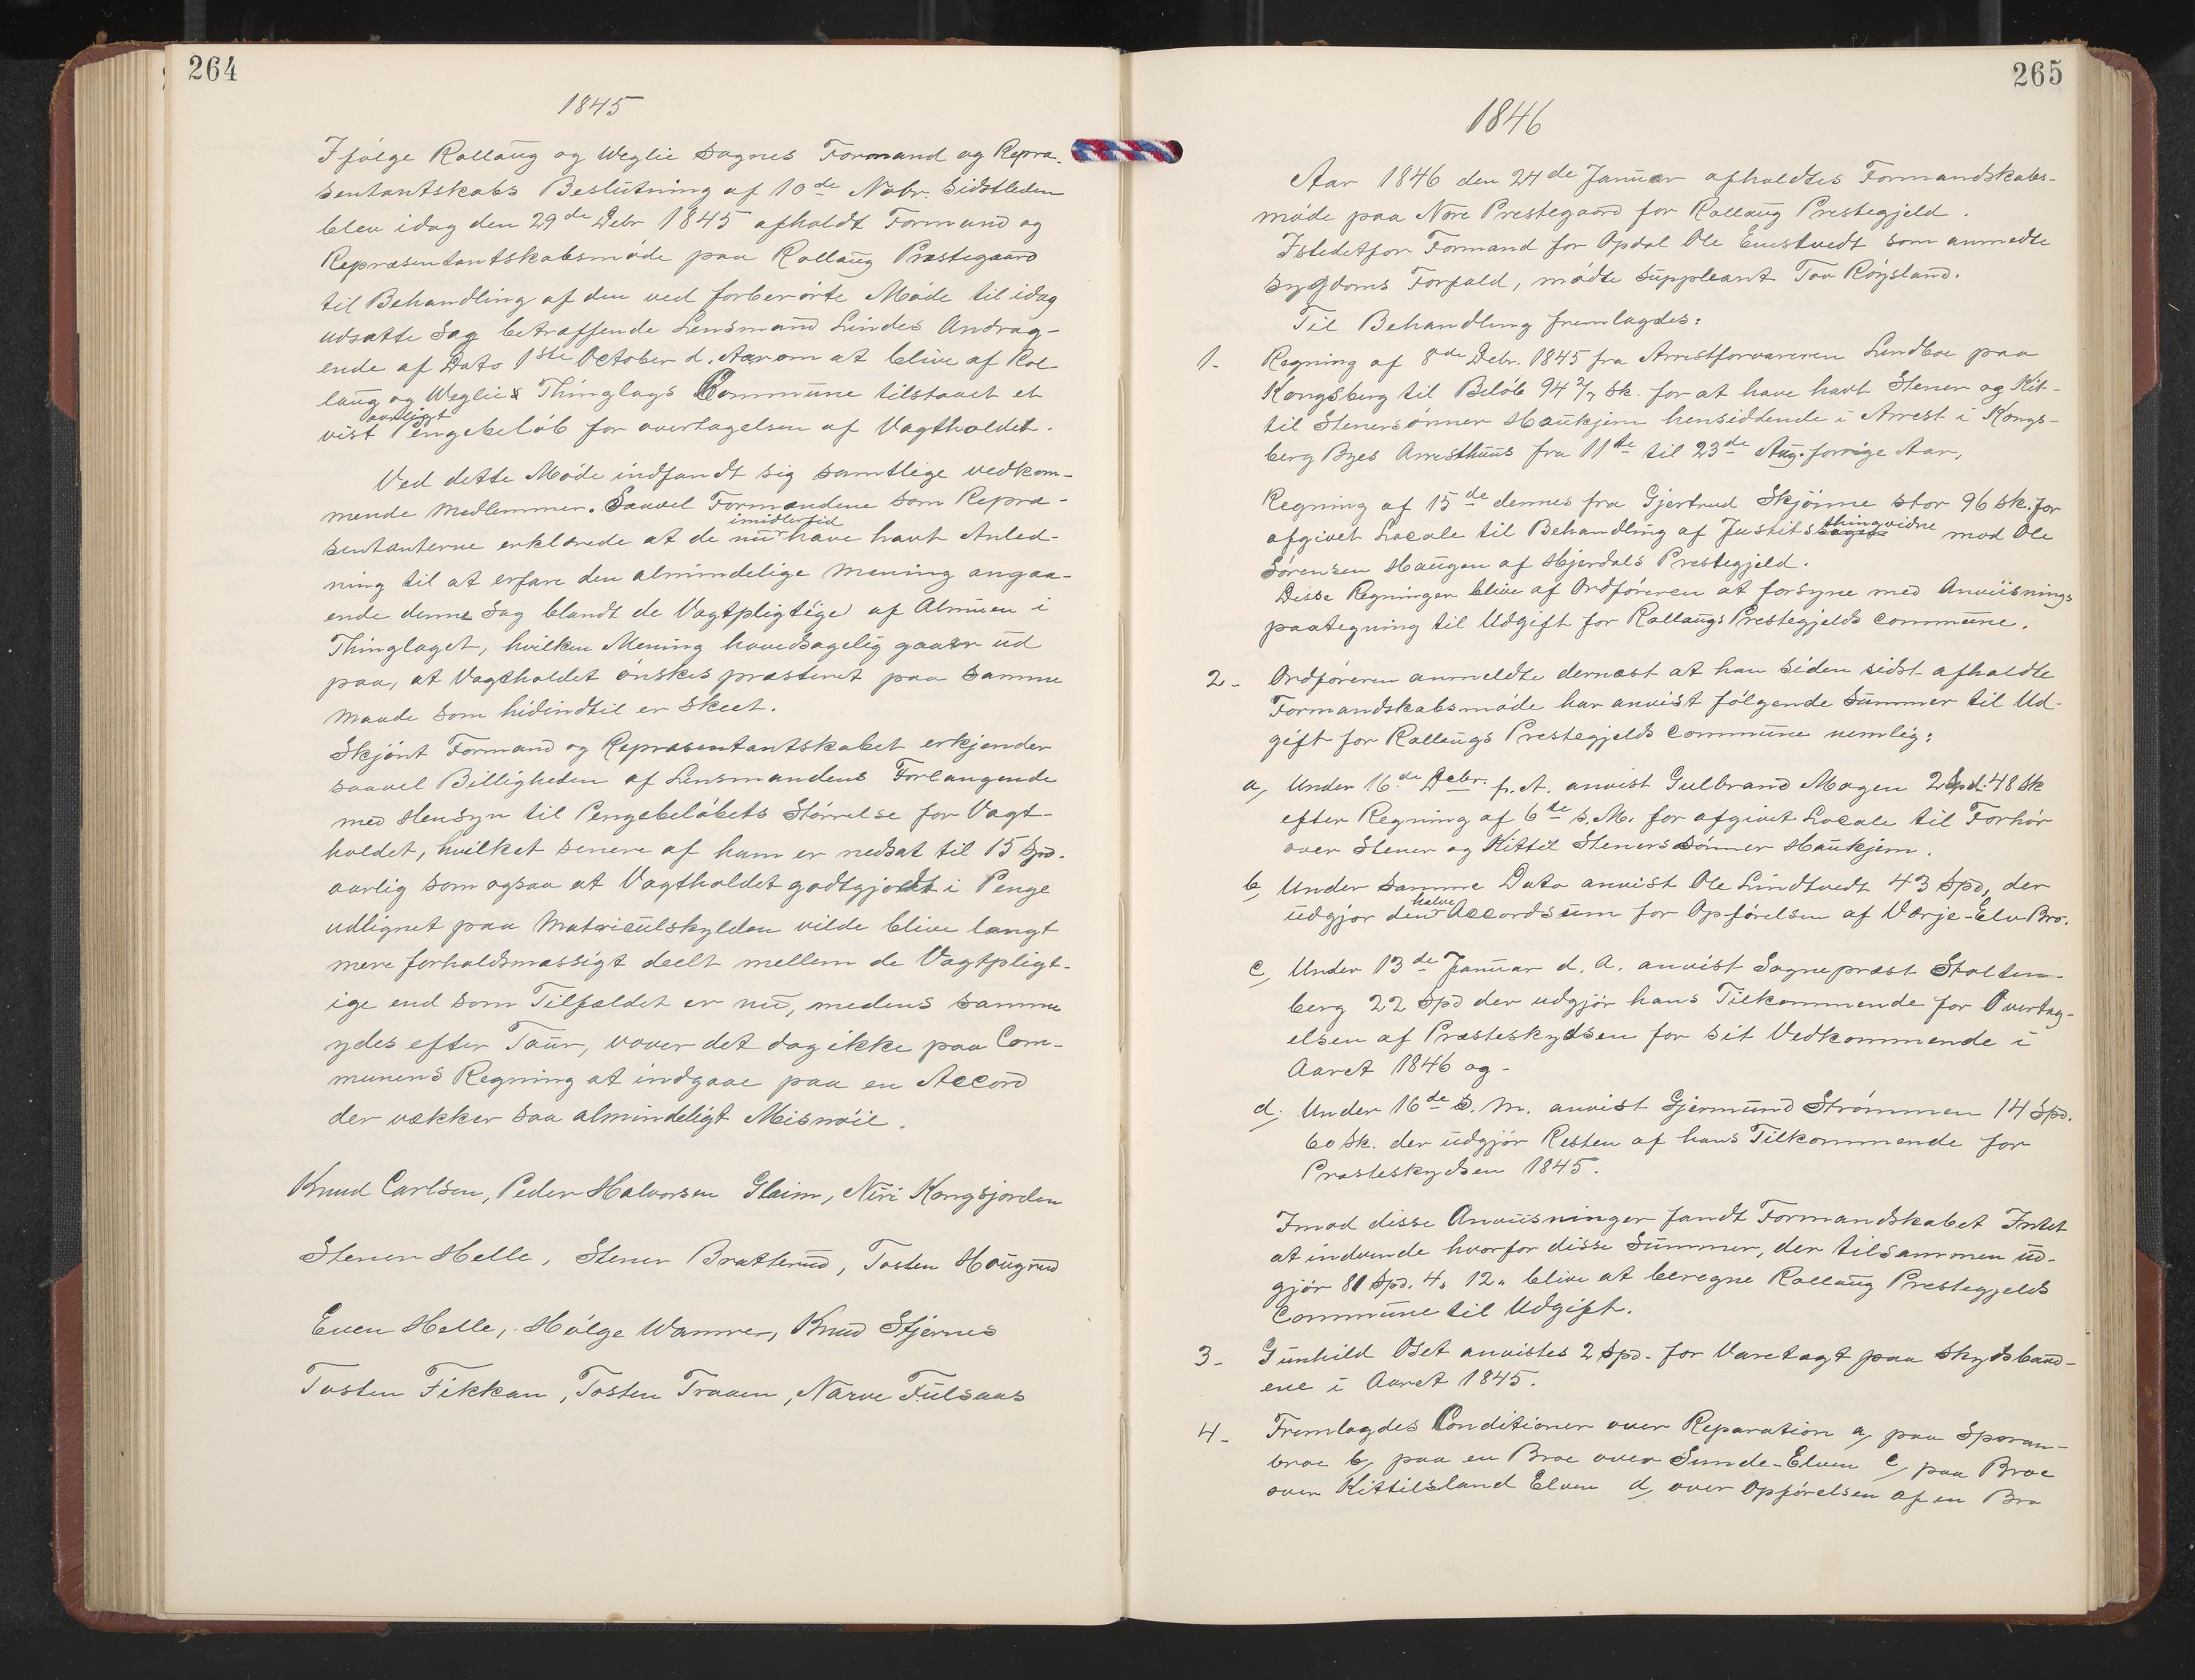 264
1845
Ifølge Rollaug og Weglie Sognes Formand og Repræ-
sentantskabs Beslutning af 10de Nobr. sidstleden
blev idag den 29de Debr 1845 afholdt Formand og
Repræsentantskabsmøde paa Rollaug Præstegaard
til Behandling af den ved forberørte Møde til idag
udsatte Sag betræffende Lensmand Lindes Andrag-
ende af Dato 1ste October d. Aar om at blive af Rol-
laug og Weglie Thinglags Commune tilstaaet et
vist aarligt Pengebeløb for overtagelsen af Vagtholdet.
Ved dette Møde indfandt sig samtlige vedkom-
mende Medlemmer. Saavel Formændene som Repræ-
sentanterne erklærede at de nu imidlertid have havt Anled-
ning til at erfare den almindelige Mening angaa-
ende denne Sag blandt de Vagtpligtige af Almuen i
Thinglaget, hvilken Mening hovedsagelig gaaer ud
paa, at Vagtholdet ønskes præsteret paa samme
Maade som hidindtil er skeet.
Skjønt Formand og Repræsentantskabet erkjender
saavel Billigheden af Lensmandens Forlangende
med Hensyn til Pengebeløbets Størrelse for Vagt-
holdet, hvilket senere af ham er nedsat til 15 Spd.
aarlig som ogsaa at Vagtholdet godtgjordt i Penge
udlignet paa Matriculskylden vilde blive langt
mere forholdsmæssigt deelt mellem de Vagtpligt-
ige end som Tilfældet er nu, medens samme
ydes efter Tour, vover det dog ikke paa Com-
munens Regning at indgaae paa en Accord
der vækker saa almindeligt Misnøie.
Knud Carlsen, Peder Halvorsen Glaim, Niri Kongsjorden
Stener Helle, Stener Bratterud, Tosten Hougrud
Even Helle, Hølge Wamre, Knud Stjernes
Tosten Fikkan, Tosten Traaen, Narve Fulsaas
265
1846
Aar 1846 den 24de Januar afholdtes Formandskabs-
møde paa Nore Prestegaard for Rollaug Prestegjeld.
Istedetfor Formand for Opdal Ole Enestvedt som anmedte
Sygdoms Forfald, mødte Suppleant Tov Røysland.
Til Behandling fremlagdes:
1. Regning af 8de Debr. 1845 fra Arrestforvareren Lundboe paa
Kongsberg til Beløb 94 2/7 Sk. for at have havt Stener og Kit-
til Stenersønner Houkjem hensiddende i Arrest i Kongs-
berg Byes Arresthuus fra 11te til 23de Aug. forrige Aar,
Regning af 15de dennes fra Gjertrud Skjønne stor 96 Sk. for
afgivet Locale til Behandling af Justitsthingvidne mod Ole
Sørensen Haugen af Hjerdals Prestegjeld.
Disse Regninger blive af Ordføreren at forsyne med Anviisnings
paategning til Udgift for Rollaugs Prestegjelds Commune.
2. Ordføreren anmeldte dernæst at han siden sidst afholdte
Formandskabsmøde har anvist følgende Summer til Ud-
gift for Rollaugs Prestegjelds Commune nemlig:
a, Under 16de Debr. f. A. anvist Gulbrand Mogen 2 Spd. 48 Sk
efter Regning af 6te s. M. for afgivet Locale til Forhør
over Stener og Kittil Stenerssønner Houkjem.
b, Under samme Dato anvist Ole Lindtvedt 43 Spd, der
udgjør den halve Accordsum for Opførelsen af Værje-Elv Bro.
c, Under 13de Januar d. A. anvist Sognepræst Stolten-
berg 22 Spd der udgjør hans Tilkommende for Overtag-
elsen af Præsteskydsen for sit Vedkommende i
Aaret 1846 og-
d, Under 16de S. M. anvist Gjermund Strømmen 14 Spd.
60 Sk. der udgjør Resten af hans Tilkommende for
Præsteskydsen 1845.
Imod disse Anviisninger fandt Formandskabet Intet
at indvende hvorfor disse Summer, der tilsammen ud-
gjør 81 Spd. 4" 12" blive at beregne Rollaug Prestegjelds
Commune til Udgift.
3. Gunhild Oset anvistes 2 Spd. for Varetægt paa Skydsbaad-
ene i Aaret 1845.
4. Fremlagdes Conditioner over Reparation a, paa Sporan-
broe b, paa en Broe over Sunde-Elven c, paa Broe
over Kittilsland Elven d, over Opførelsen af en Bro